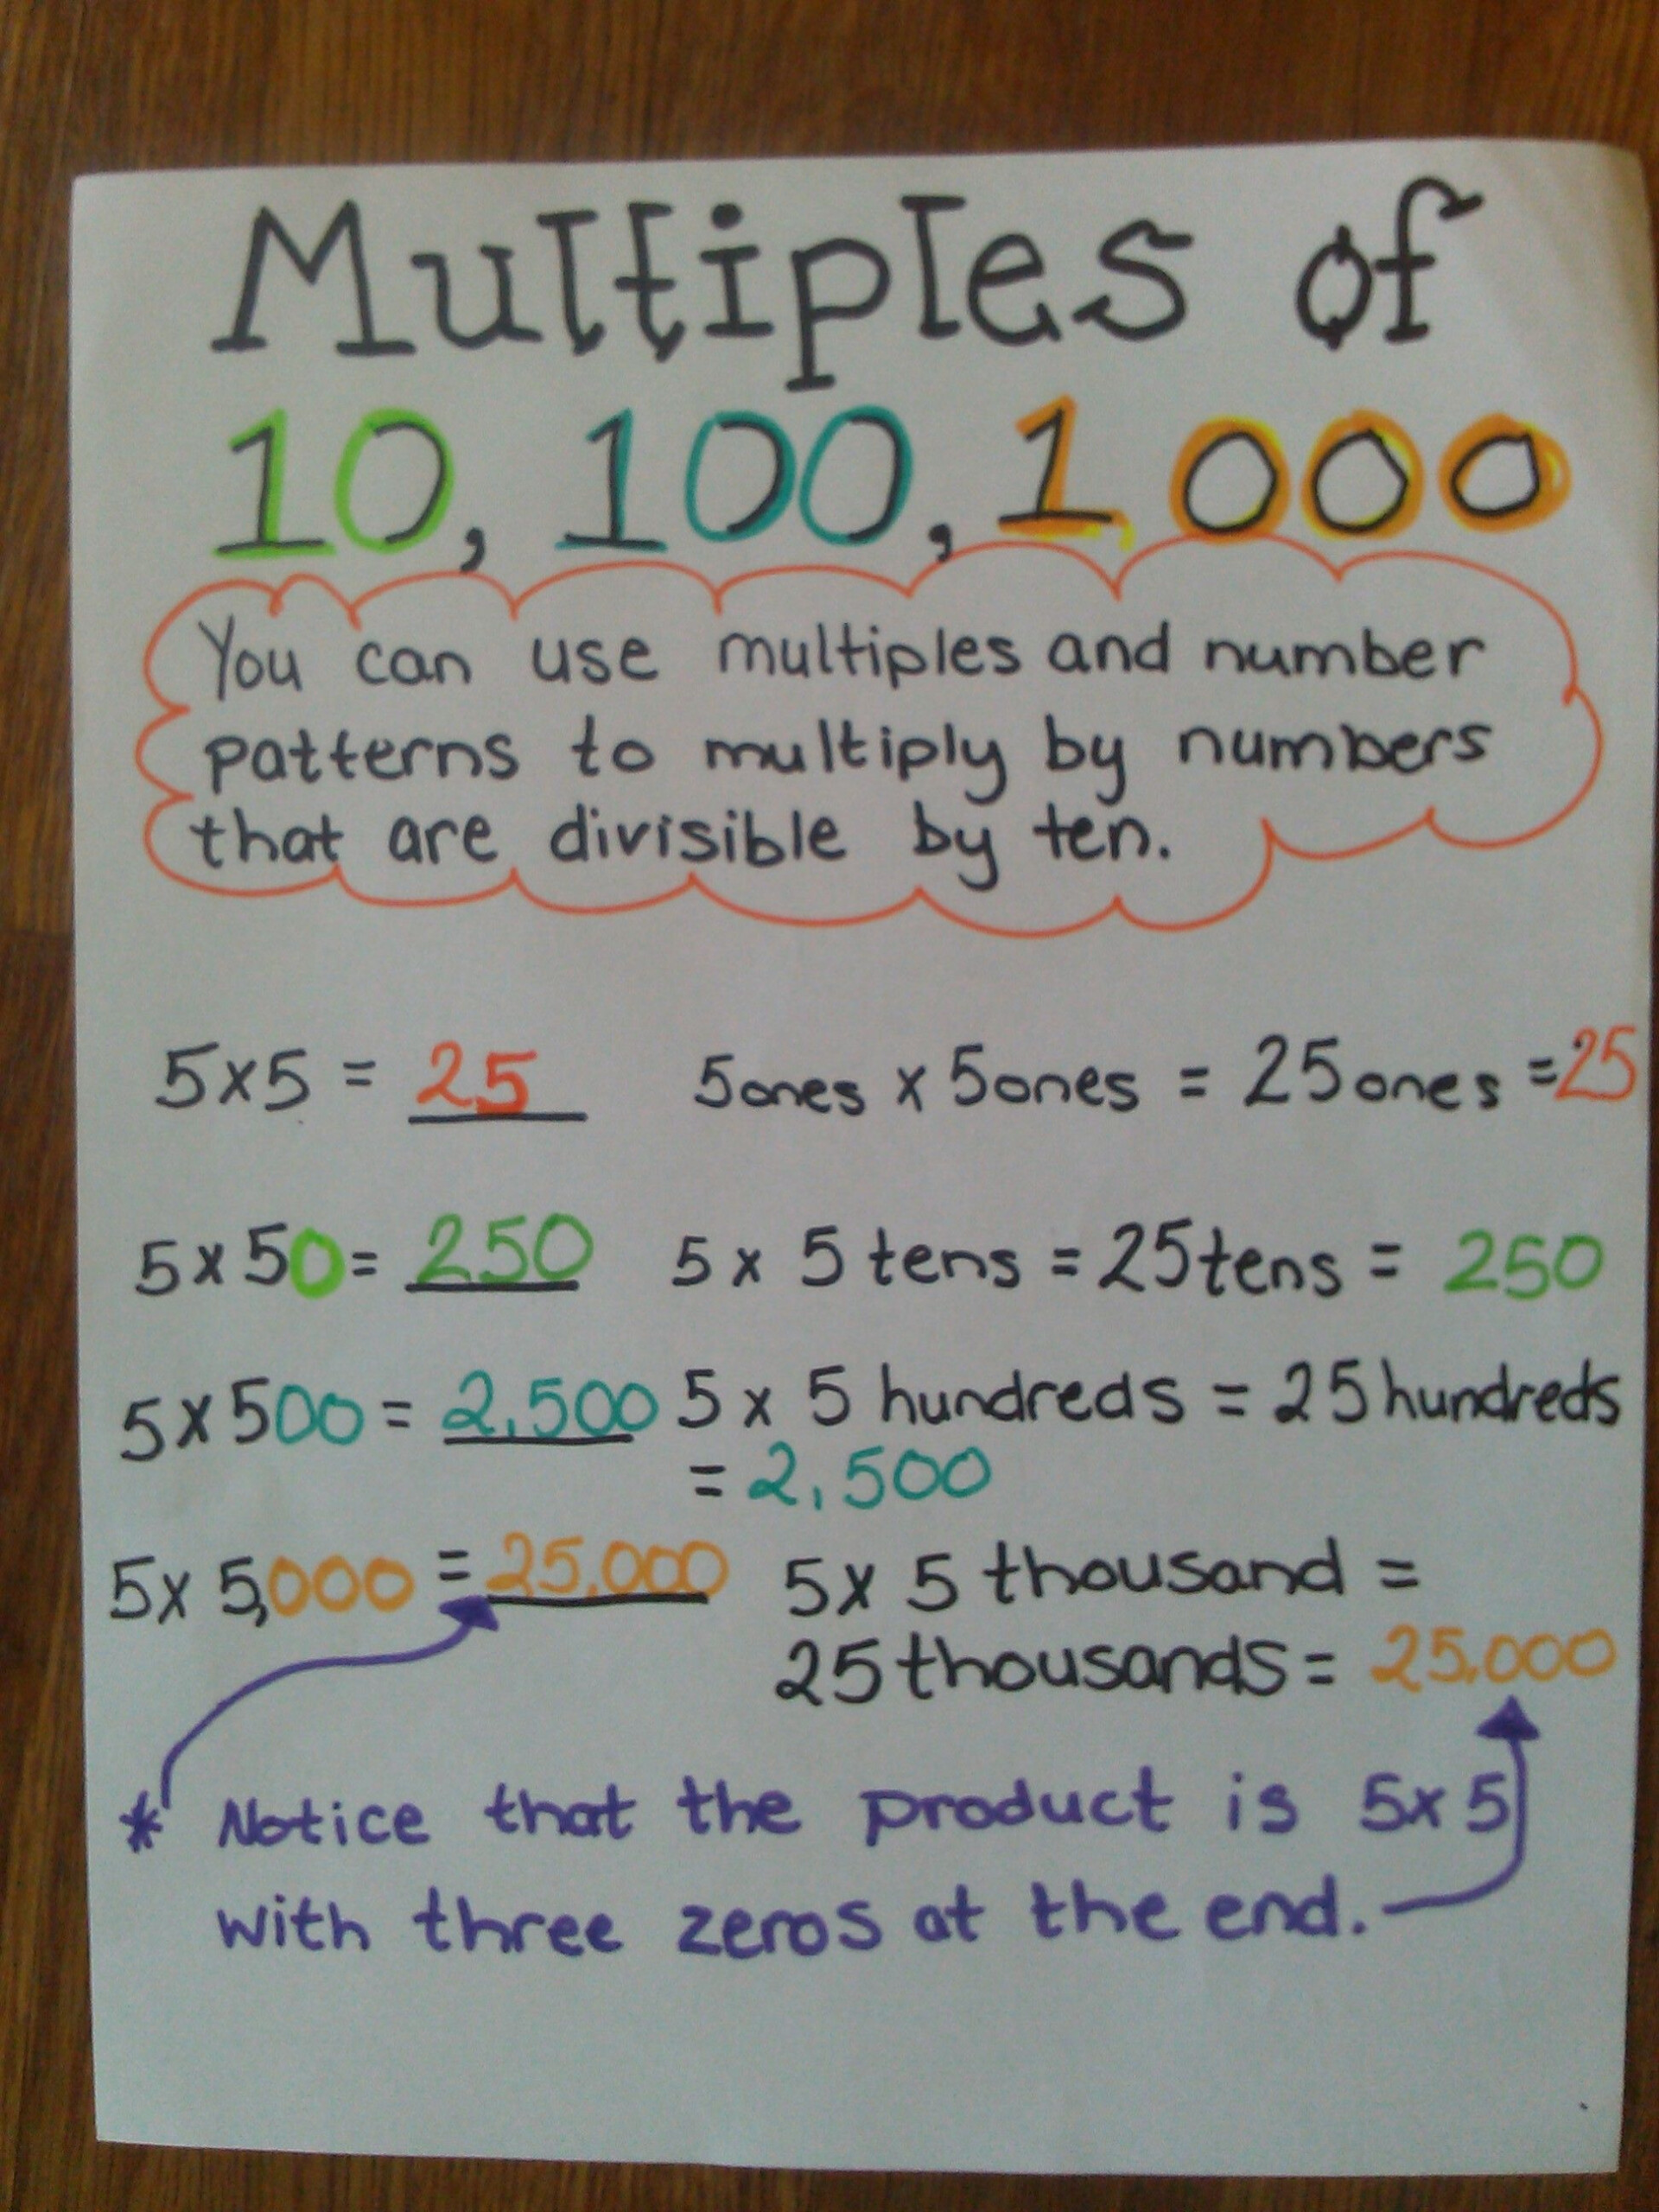 Multiples of
10, 100, 1,000
You can use multiples and number
patterns to multiply by numbers
that are divisible by ten.
5x5 = 25 5ones x 5ones = 25ones =25
5x50= 250 5 x 5 tens = 25tens = 250
5x500 = 2,500 5 x 5 hundreds = 25 hundreds
= 2,500
5x 5,000 = 25,000 5x 5 thousand =
25 thousands = 25,000
* Notice that the product is 5x5
with three zeros at the end.